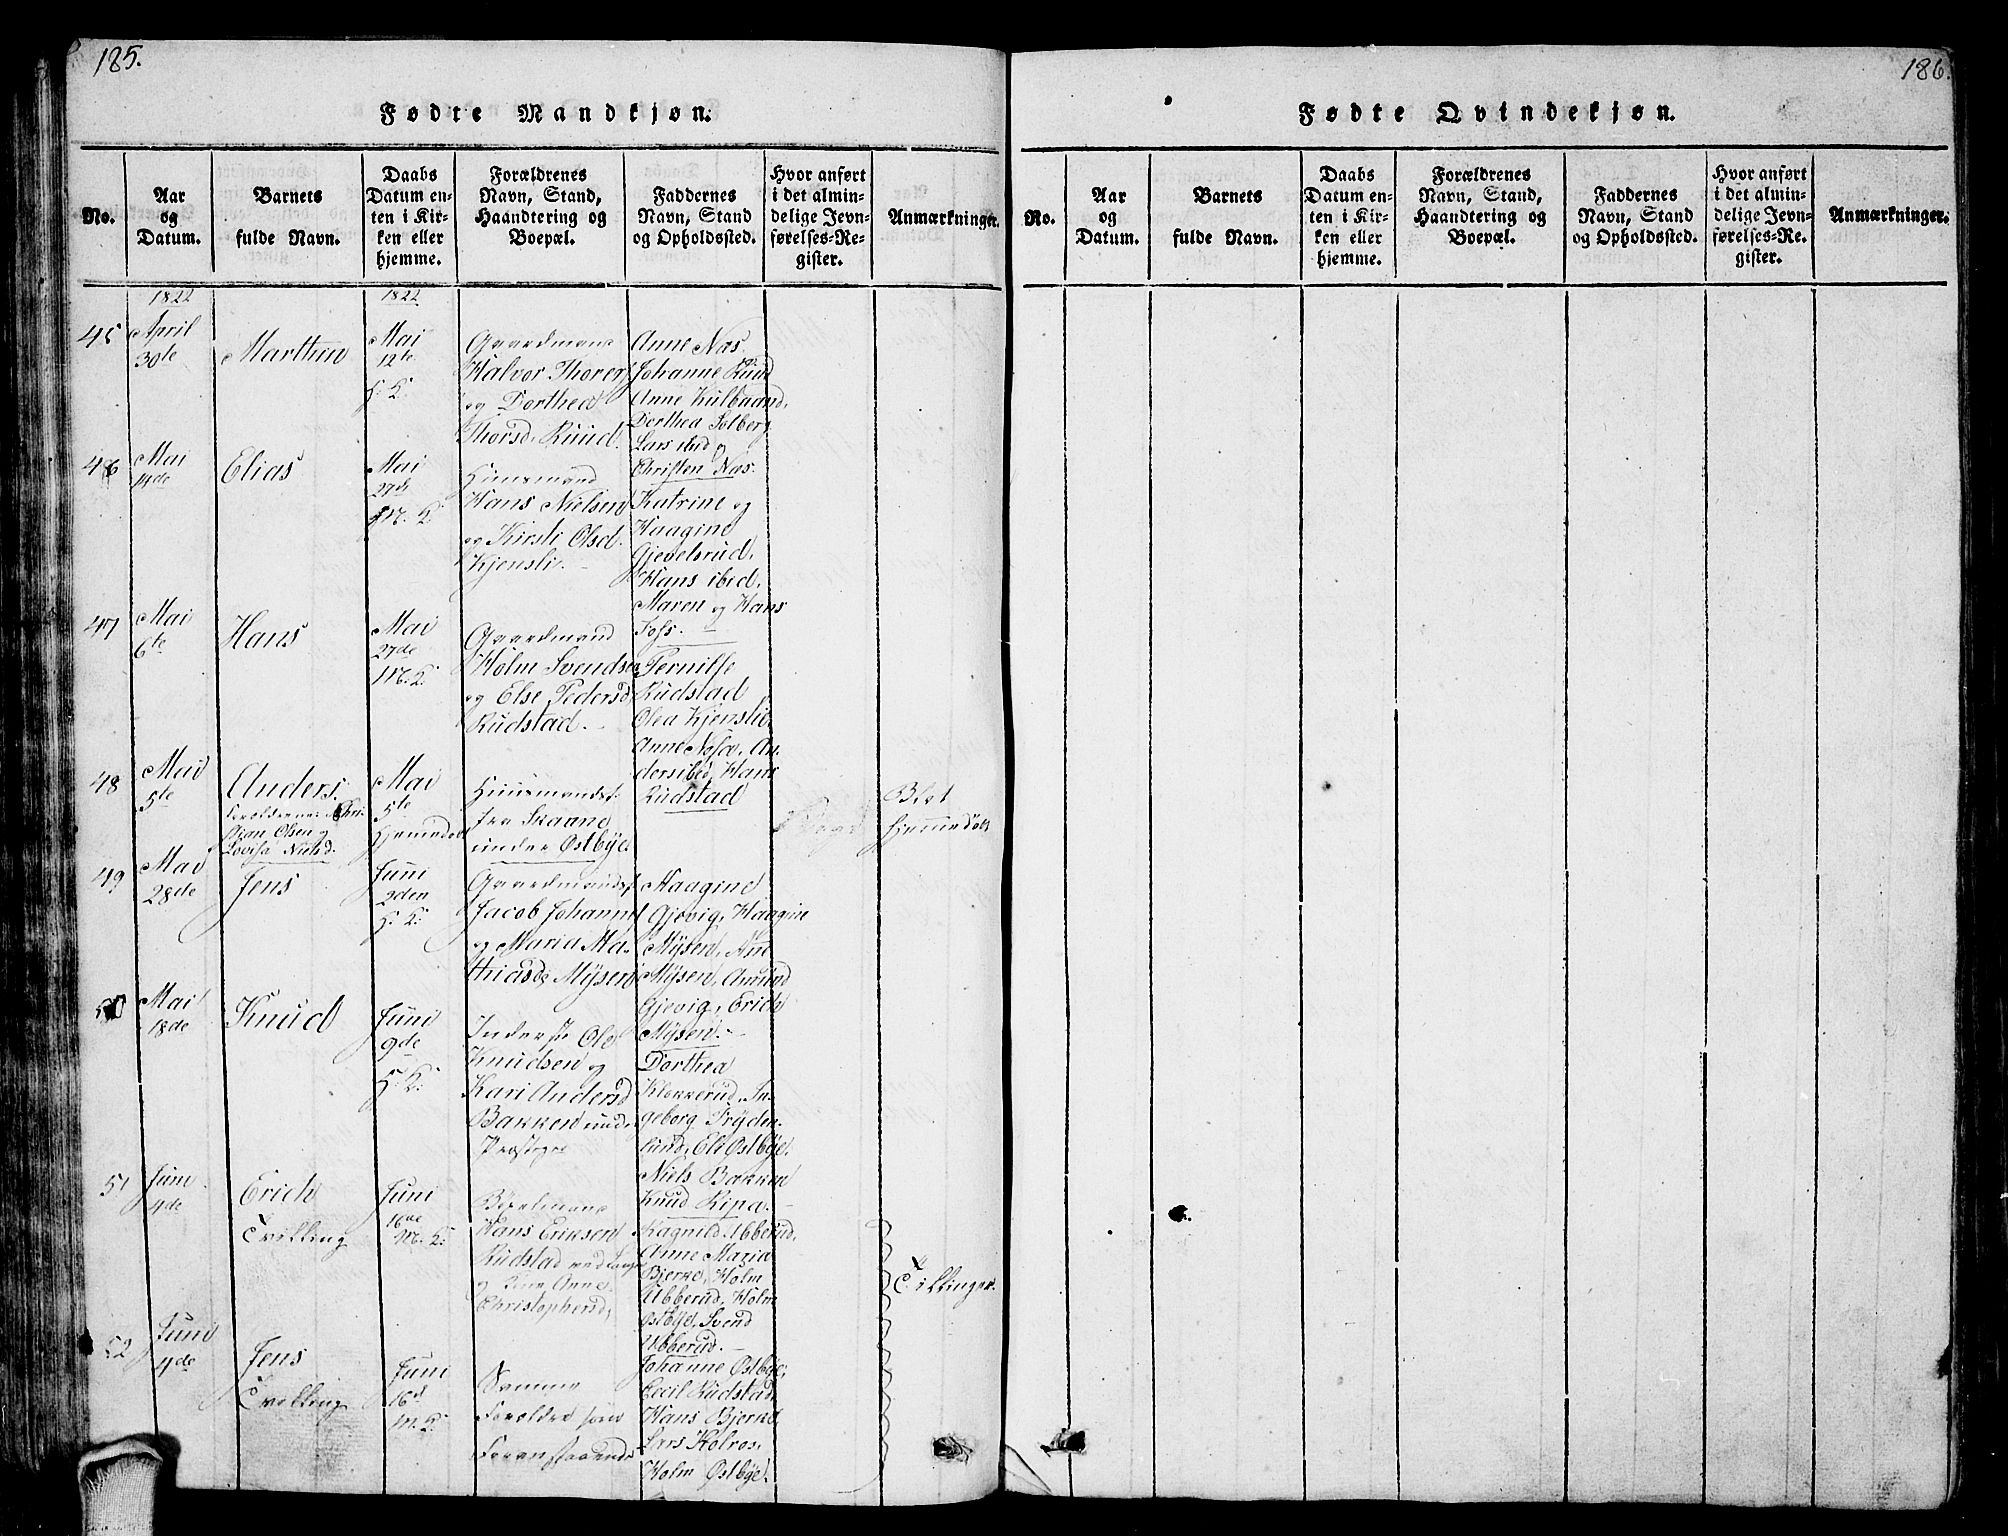 185.
Fødte Mandkjøn.
No.
Aar
og
Datum.
Barnets
fulde Navn.
Daabs
Datum en-
ten i Kir-
ken eller
hjemme.
Forældrenes
Navn, Stand,
Haandtering og
Boepæl.
Faddernes
Navn, Stand
og Opholdssted.
Hvor anført
i det almin-
delige Jevn-
førelses-Re-
gister.
Anmærkninger.
1822
1822
45
April
30te
Marthin
Mai
12te
H. K.
Gaardmand
Halvor Thorer
og Dorthea
Thorsd. Ruud.
Anne Nas.
Johanne Ruud
Anne Kulbaand,
Dorthea Solberg
Lars ibid og
Christen Nas.
46
Mai
14de
Elias
Mai
27de
M. K.
Huusmand
Hans Nielsen
og Kirsti Olsd.
Kjensli.
Katrine og
Haagine
Gjevelsrud,
Hans ibid,
Maren og Hans
Foss.
47
Mai
6te
Hans
Mai
27de
M. K.
Gaardmand
Holm Svendsen
og Else Pedersd
Rudstad.
Pernille
Rudstad
Olea Kjenslie,
Anne Foss, An-
ders ibid, Hans
Rudstad
48
Mai
5te
Anders.
Forældrene: Chri-
stian Olsen og
Lovisa Nielsd.
Mai
5te
Hjemmedøbt
Huusmandsf.
fra Skaane
under Østbye.
Blot
hjemmedøbt
49
Mai
28de
Jens
Juni
2den
H. K.
Gaardmandsf.
Jacob Johannes
og Maria Ma-
thiasd. Mysen
Haagine
Gjevig, Haagine
Mysen, Ane
Mysen, Amund
Gjevig, Erich
Mysen.
50
Mai
18de
Knud
Juni
9de
H. K.
Inderste Ole
Knudsen og
Kari Andersd
Bakken under
Præstegrd
Dorthea
Klokkerud, In-
geborg Fryden-
lund, Eli Østbye,
Niels Bakken
Knud Ripa.
51
Juni
4de
Erich
Tvilling
Juni
16de
M. K.
Hans Eriksen
Rudstad
og Anne
Christophersd,
Ragnild Ubberud,
Anne Maria
Bjerke, Holm
Ubberud, Holm
Østbye, Svend
Ubberud.
Tvillinger.
52
Juni
4de
Jens
Tvilling
Juni
16de
M. K.
Samme
Forældre som
Foranstaaende
Johanne Østbye,
Cecil Rudstad,
Hans Bjerke,
Lars Kolros,
Holm Østbye.
186.
Fødte Qvindekjøn.
No.
Aar
og
Datum.
Barnets
fulde Navn.
Daabs
Datum en-
ten i Kir-
ken eller
hjemme.
Forældrenes
Navn, Stand,
Haandtering og
Boepæl.
Faddernes
Navn, Stand
og Opholdssted.
Hvor anført
i det almin-
delige Jevn-
førelses-Re-
gister.
Anmærkninger.